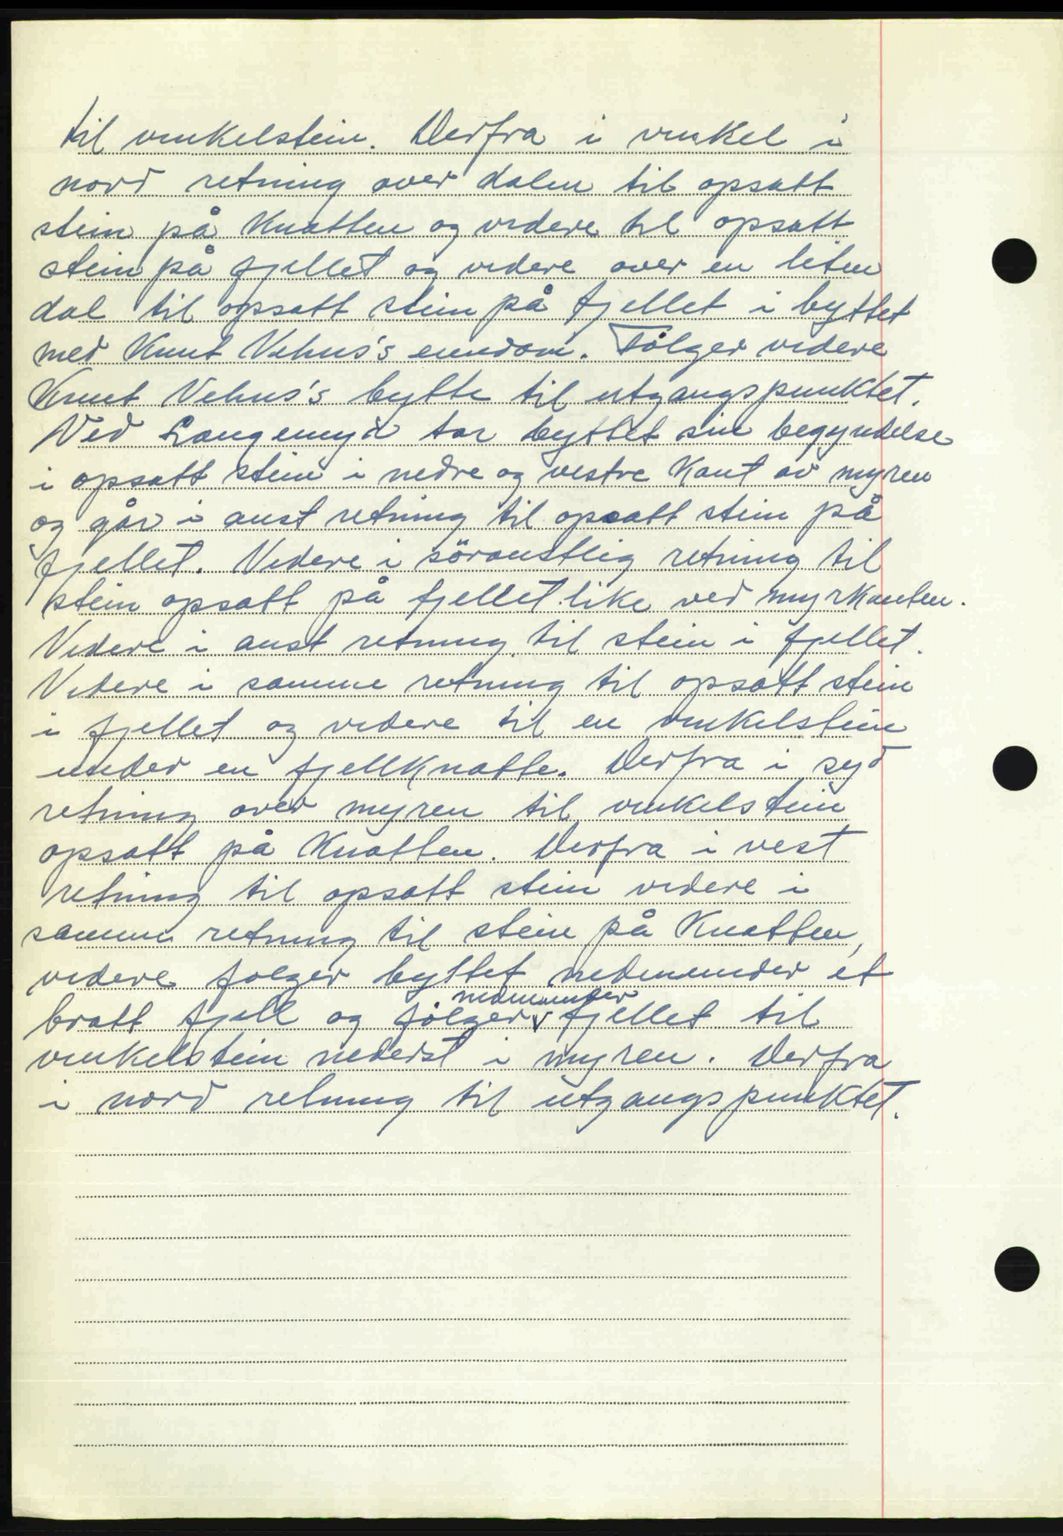 til vinkelstein. Derfra i vinkel i
nord retning over dalen til opsatt
stein på Knatten og videre til opsatt
stein på fjellet og videre over en liten
dal til opsatt stein på fjellet i byttet
med Knut Vehus's eiendom. Følger videre
Knut Vehus's bytte til utgangspunktet.
Ved Langemyr tar byttet sin begyndelse
i opsatt stein i nedre og vestre Kant av myren
og går i aust retning til opsatt stein på
fjellet. Videre i söraustlig retning til
stein opsatt på fjellet like ved myrkanten.
Videre i aust retning til stein i fjellet.
Videre i samme retning til opsatt stein
i fjellet og videre til en vinkelstein
under en fjellknatte. Derfra i syd
retning over myren til vinkelstein
opsatt på Knatten. Derfra i vest
retning til opsatt stein videre i
samme retning til stein på Knatten,
videre følger byttet nedenunder et
nedenunder
bratt fjell og følger fjellet til
vinkelstein nederst i myren. Derfra
i nord retning til utgangspunktet.